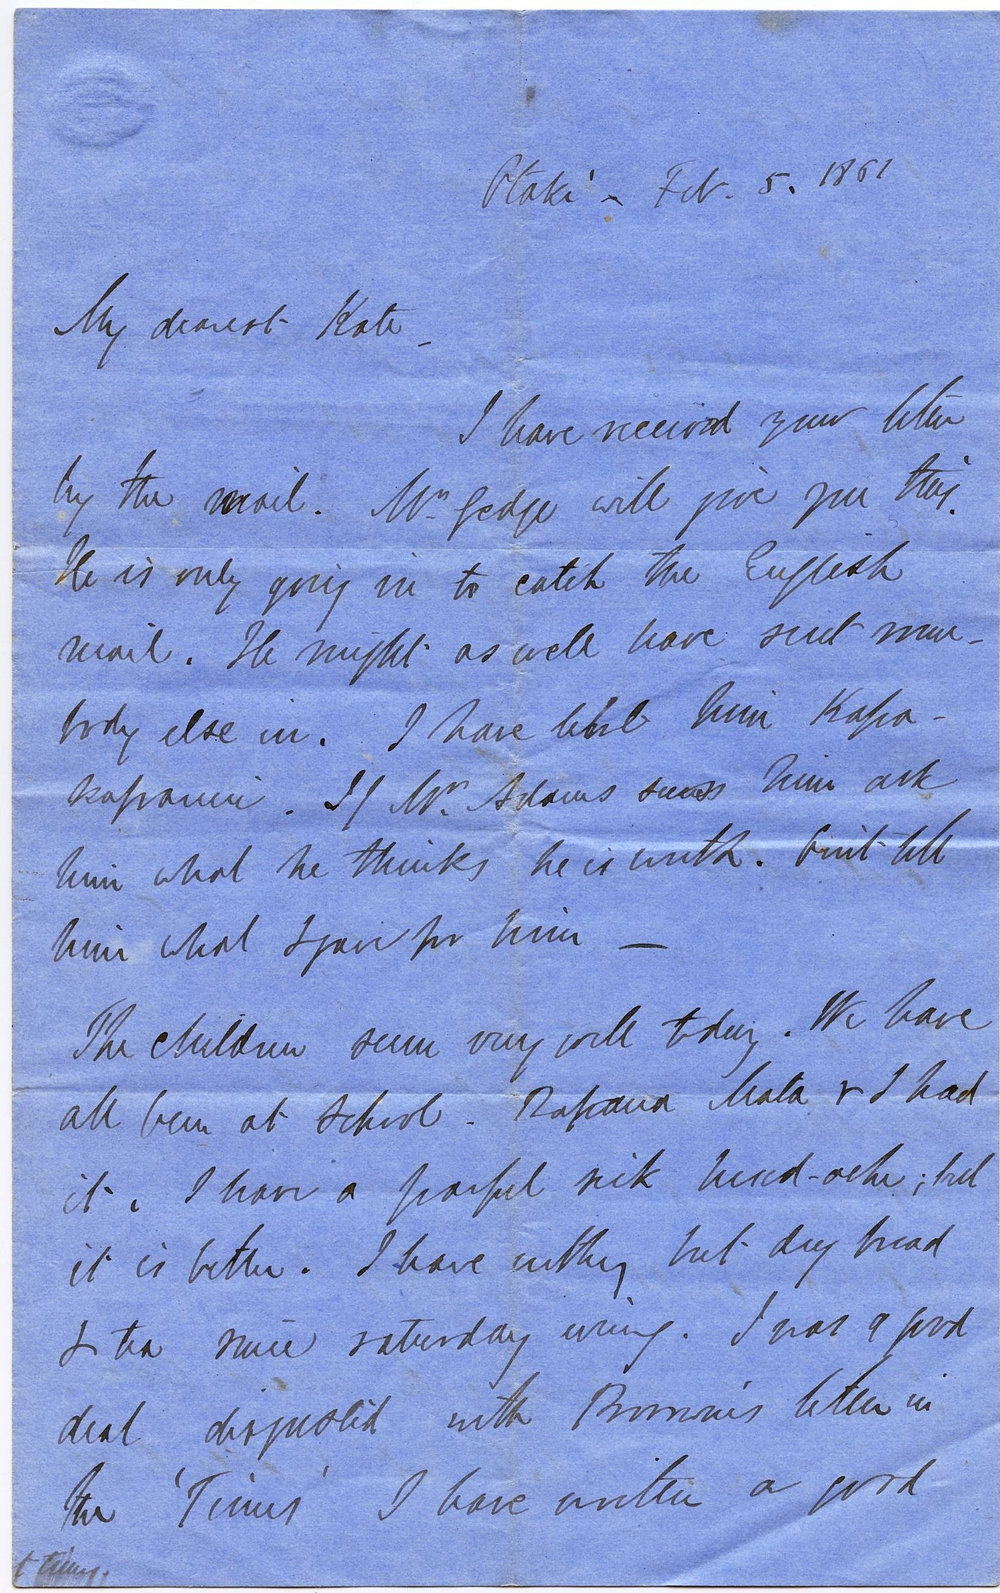 Otaki - Feb. 5. 1861
My dearest Kate -
I have received your letter
by the mail. Mr. Gedge will give you this.
He is only going in to catch the English
mail. He might as well have sent some-
body else in. I have lent him Kapa-
kapanui. If Mr. Adams sees him ask
him what he thinks he is worth. Don't tell
him what I gave for him —
The children seem very well today. We have
all been at School. Rapana Mata & I had
it. I have a fearful sick head-ache; but
it is better. I have nothing but dry bread
& tea since saturday evening. I was a good
deal disgusted with Brown's letter in
the 'Times' I have written a good